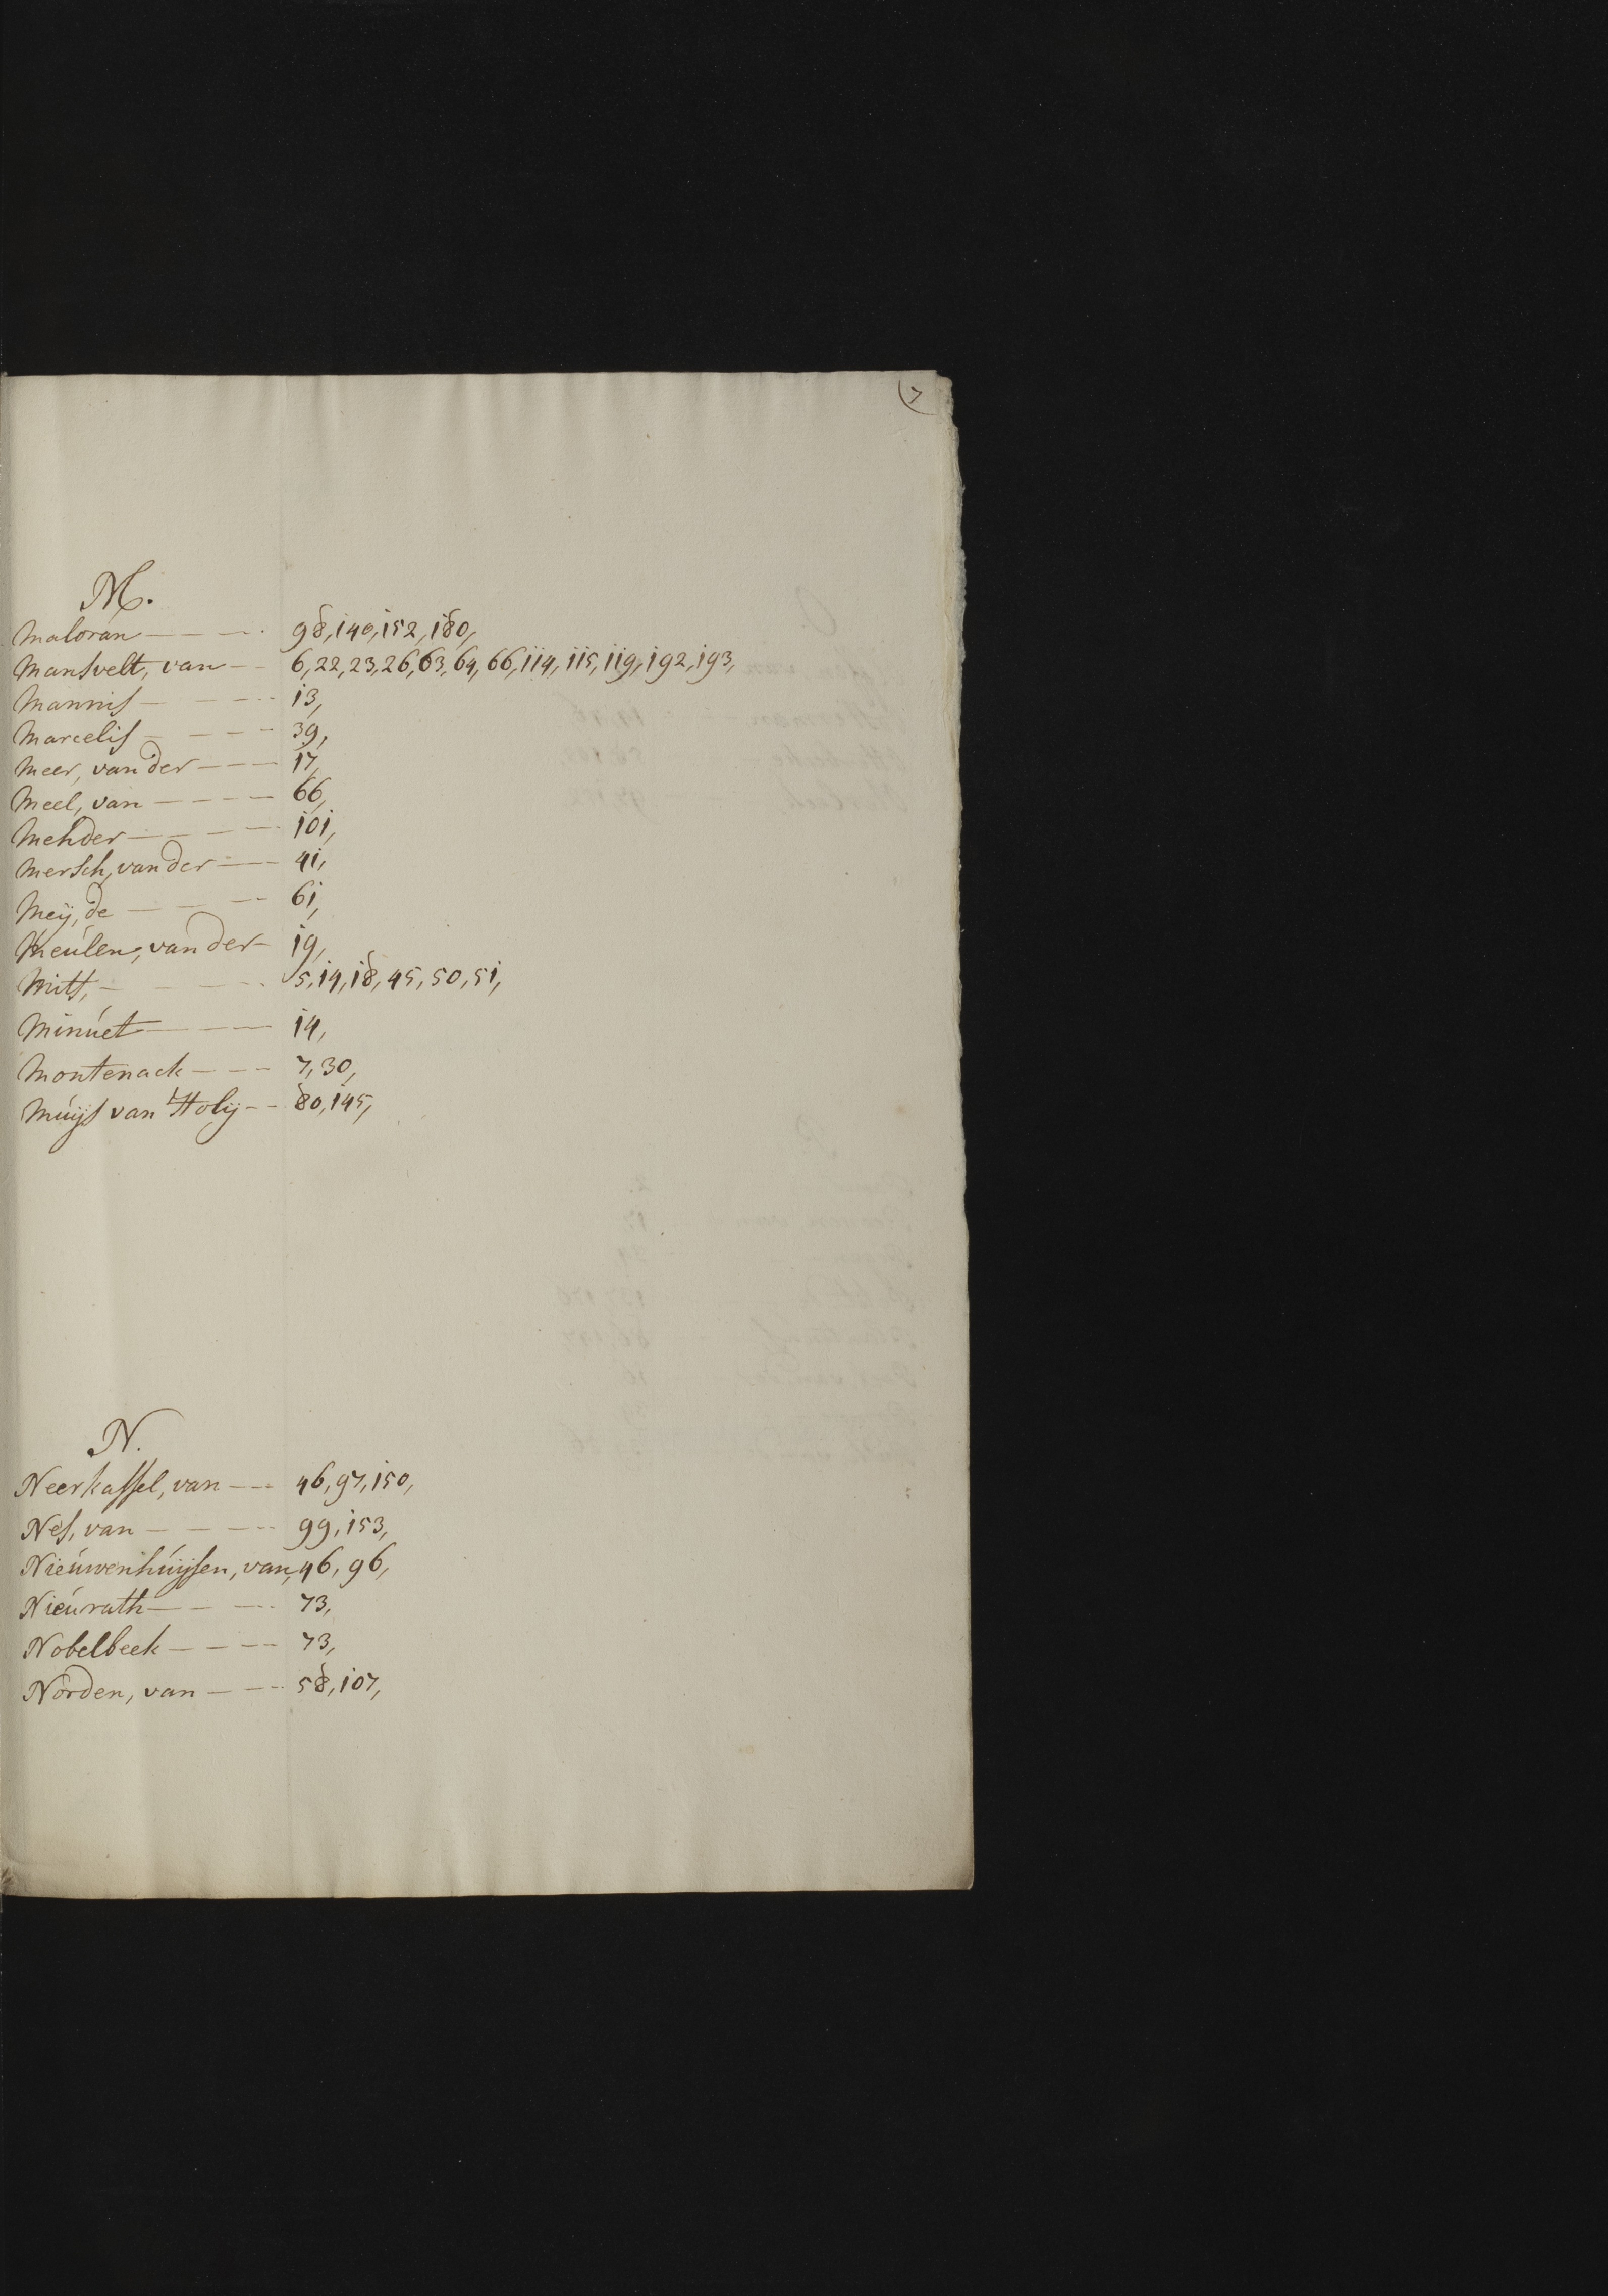 7
M.
Maloran - - - - 98, 140, 152, 180,
Mansvelt, van - - 6, 22, 23, 26, 63, 64, 66, 114, 115, 119, 192, 193,
Mannis - - - - 13,
Marcelis - - - - 39,
Meer, van der - - - 17,
Meel, van - - - - 66,
Mehder - - - - 101,
Mersch, van der - - - 41,
Meÿ, de - - - 61,
Meúlen, van der - 19,
Mitt, - - - - 5, 14, 18, 45, 50, 51,
Minúet - - - - 14,
Montenack - - - - 7, 30,
Múÿs van Holÿ - - 80, 145,
N.
Neerkassel, van - - - 46, 97, 150,
Nes, van - - - - 99, 153,
Nieúwenhúÿsen, van, 46, 96,
Nieúrath - - - - 73,
Nobelbeek - - - - 73,
Norden, van - - - 58, 107,